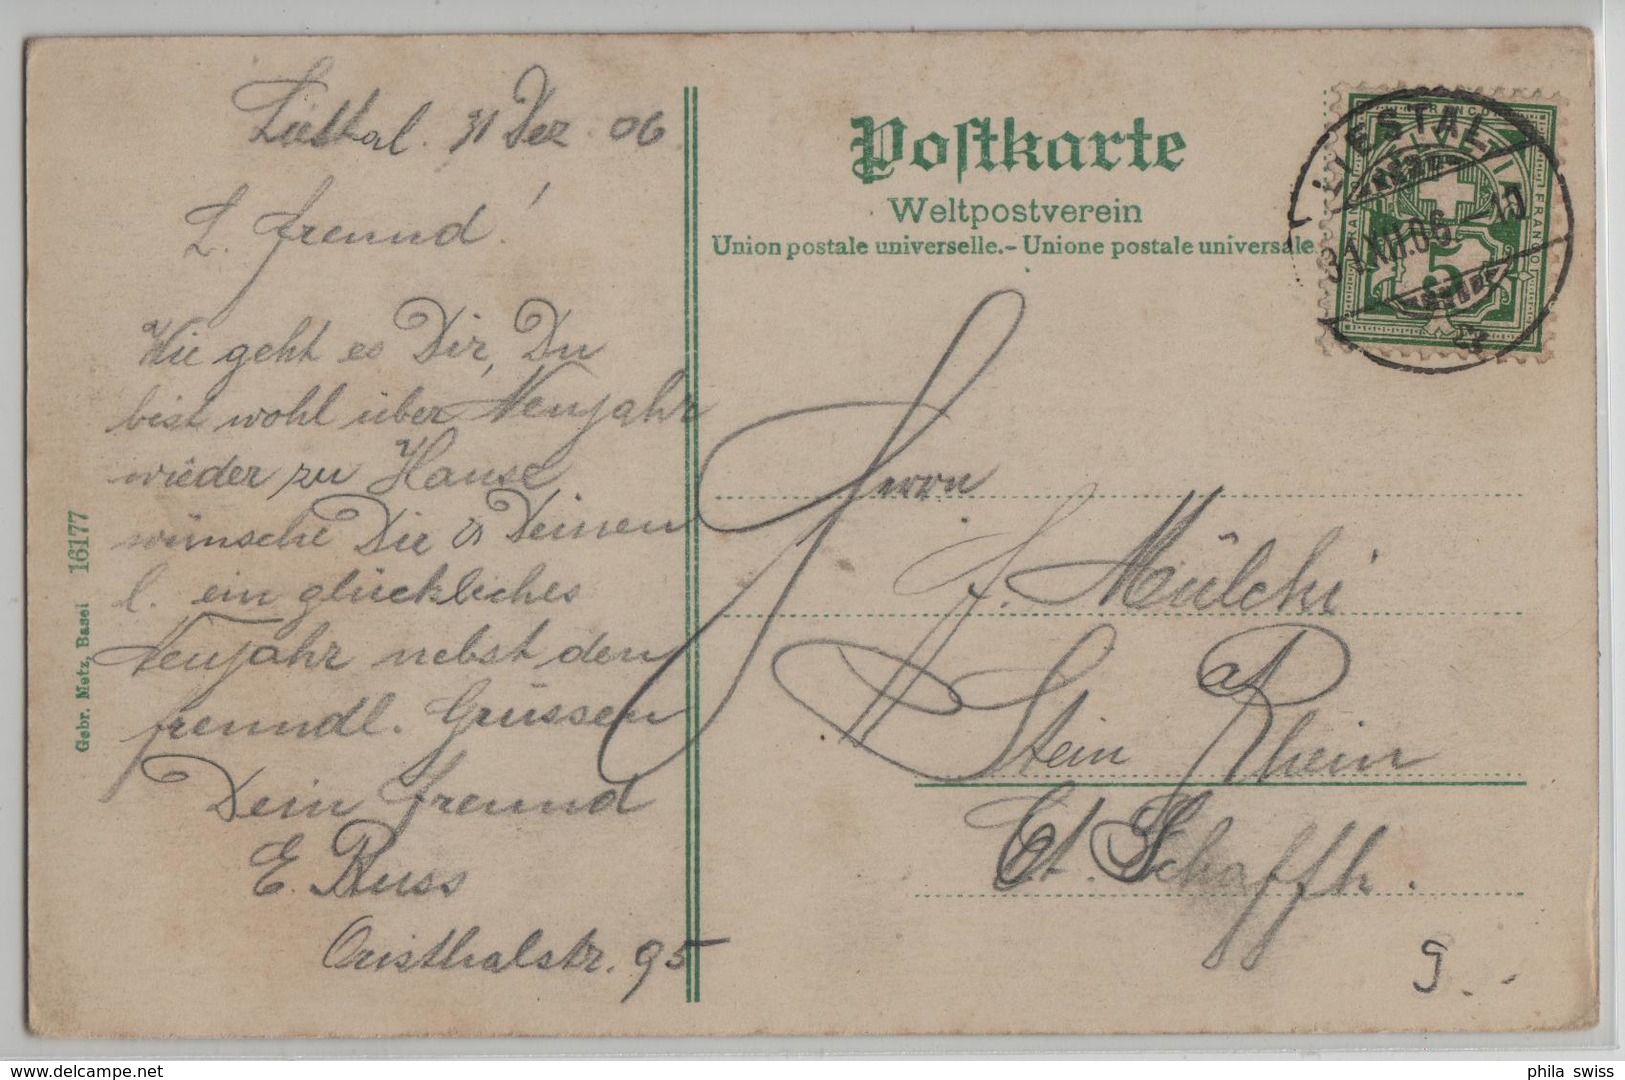 Liestal. 31 Dez. 06
L. Freund!
Wie geht es Dir, Du
bist wohl über Neujahr
wieder zu Hause
wünsche Dir & Deinen
l. ein glückliches
Neujahr nebst den
freundl. Grüssen
Dein Freund
E. Russ
Oristhalstr. 95
Gebr. Metz, Basel 16177
Postkarte
Weltpostverein
Union postale universelle.- Unione postale universale
FRANCO
FRANCO
5
LIESTAL
31.XII.06.-10
Herrn
J. Mülchi
Stein a Rhein
Ct. Schaffh.
phila swiss